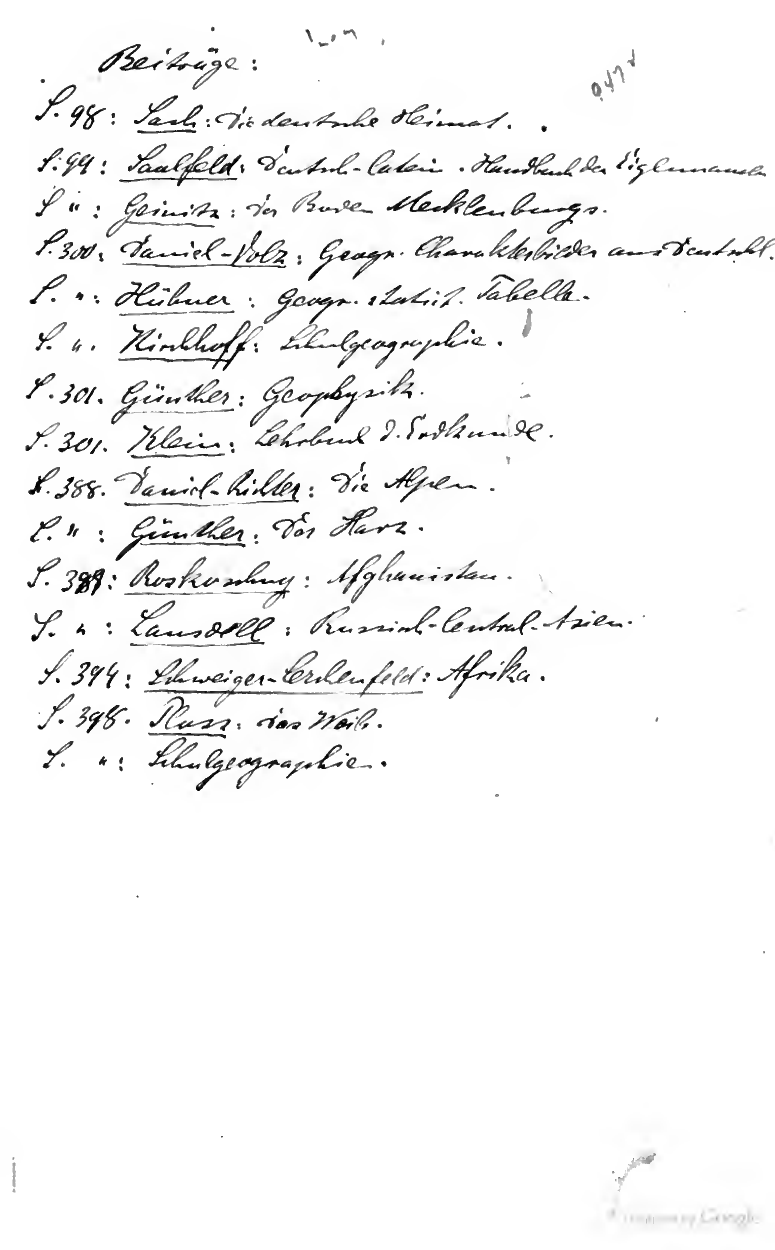 Beiträge:
S. 98: Sach: Die deutsche Heimat.
S. 99: Saalfeld: Deutsch-latein. Handbuch der Eigennamen
S. ": Geinitz: Der Boden Mecklenburgs.
S. 300: Daniel-Volz: Geogr. Charakterbilder aus Deutschl.
S. ": Hübner: Geogr. statist. Tabelle.
S. ". Kirchhoff: Schulgeographie.
S. 301. Günther: Geophysik.
S. 301. Klein: Lehrbuch d. Erdkunde.
S. 388. Daniel-Richter: Die Alpen.
S. ": Günther: Der Harz.
S. 389: Roskoschny: Afghanistan.
S. ": Lansdell: Russisch-Central-Asien.
S. 394: Schweiger-Lerchenfeld: Afrika.
S. 398. Ploss: Das Weib.
S. ": Schulgeographie.
Google